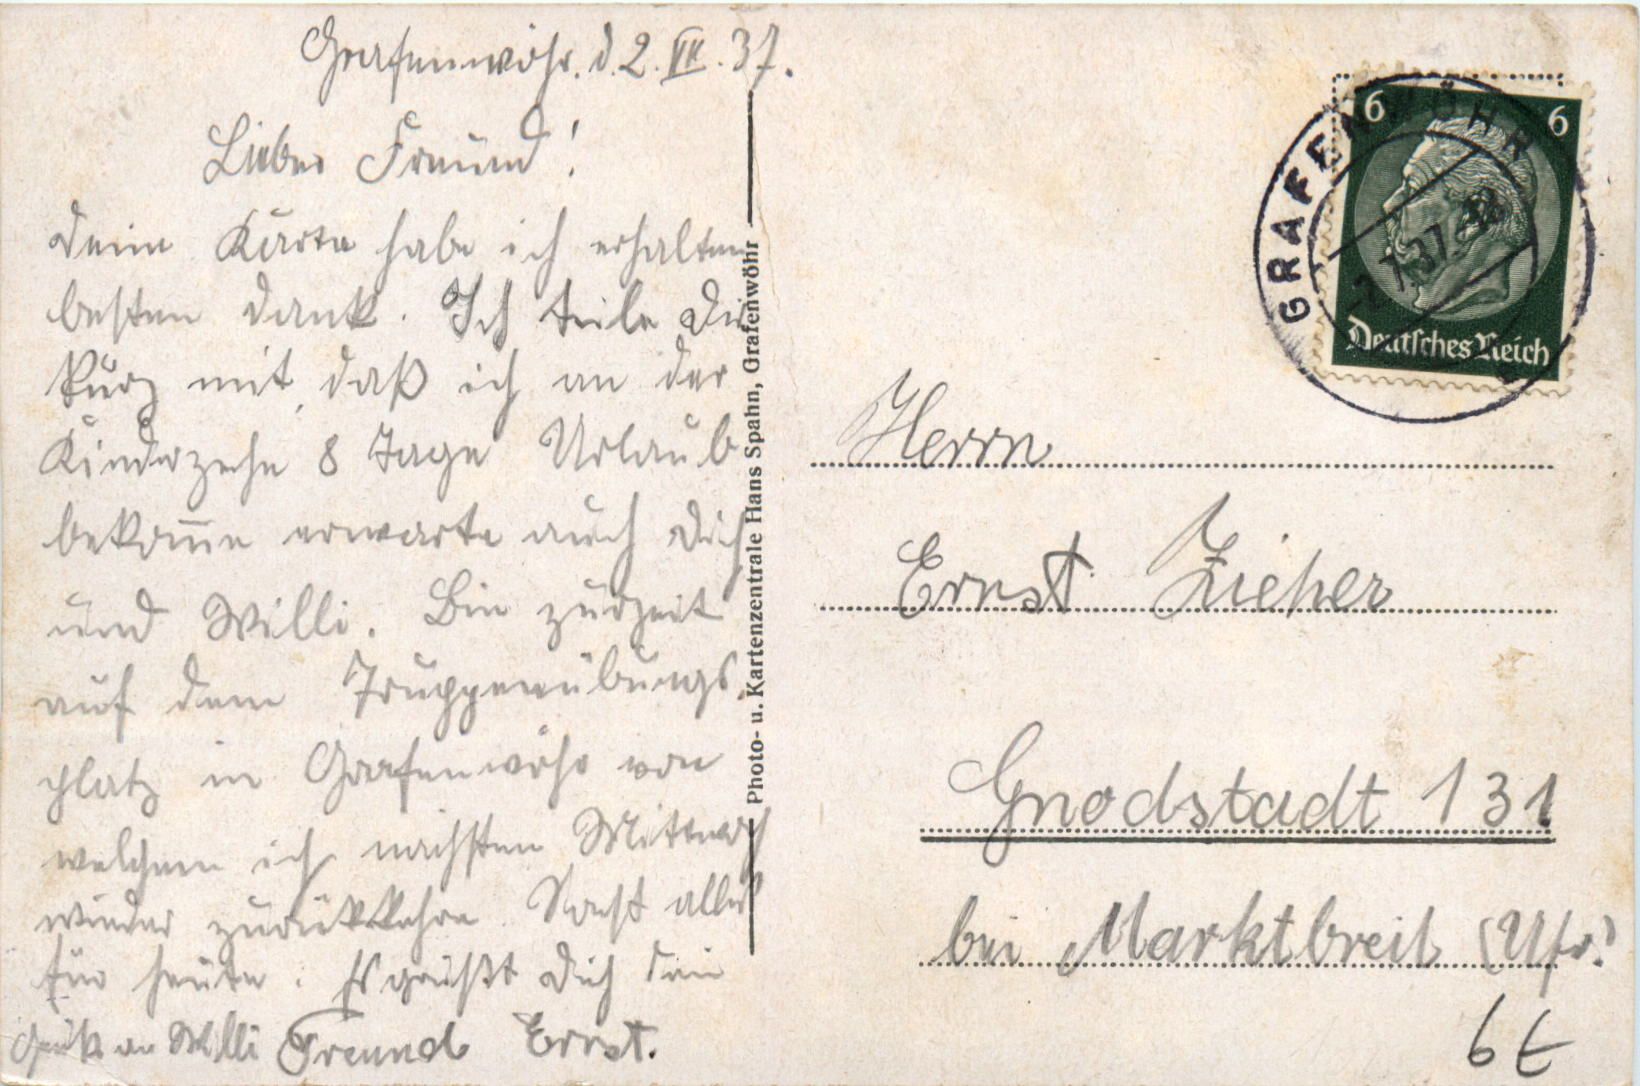 Grafenwöhr. d. 2. VII. 37.
Lieber Freund!
Deine Karte habe ich erhalten
besten Dank. Ich teile Dir
kurz mit, daß ich an der
Kinderzeche 8 Tage Urlaub
bekom̅e erwarte auch Dich
und Willi. Bin zurzeit
auf dem Truppenübungs-
platz in Grafenwöhr von
welchem ich nächsten Mittwoch
wieder zurückkehre. Sonst alles
für heute. Es grüßt Dich dein
Gruß an Willi Freund Ernst.
Photo- u. Kartenzentrale Hans Spahn, Grafenwöhr
GRAFENWÖHR
-2.7.37.-18
6 6
Deutsches Reich
Herrn
Ernst Zieher
Gnodstadt 131
bei Marktbreit (Ufr.)
6 €